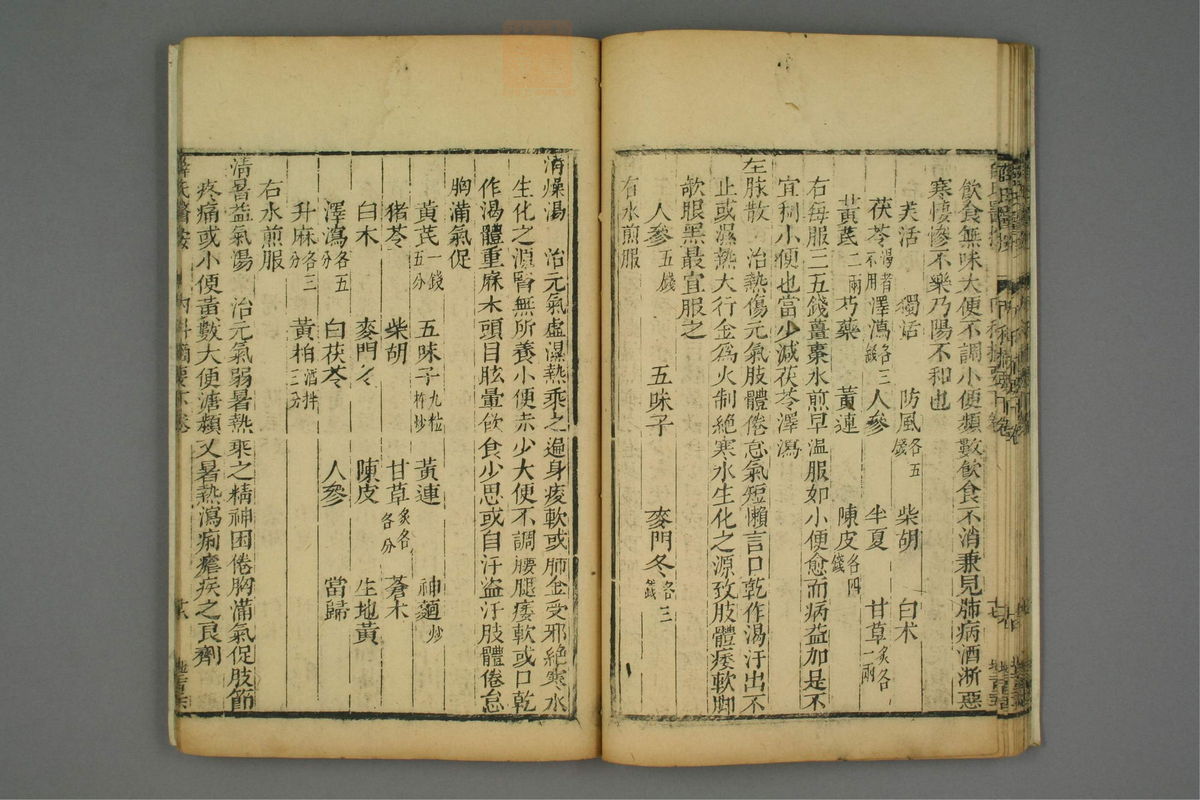 飲食無味大便不調小便頻數飲食不消兼見肺病洒淅惡
寒悽慘不樂乃陽不和也
羌活 獨活 防風各五錢 柴胡 白朮
茯苓渴者不用 澤瀉各三錢 人參 半夏 甘草炙各一兩
黃芪二兩 芍藥 黃連 陳皮各四錢
右每服三五錢薑棗水煎早溫服如小便愈而病益加是不
宜利小便也當少減茯苓澤瀉
生脉散 治熱傷元氣肢體倦怠氣短懶言口乾作渴汗出不
止或濕熱大行金為火制絕寒水生化之源致肢體痿軟脚
欹眼黑最宜服之
人參五錢 五味子 麥門冬各三錢
右水煎服
清燥湯 治元氣虛濕熱乘之遍身痠軟或肺金受邪絕寒水
生化之源腎無所養小便赤少大便不調腰腿痿軟或口乾
作渴體重麻木頭目眩暈飲食少思或自汗盜汗肢體倦怠
胸滿氣促
黃芪一錢五分 五味子九粒杵炒 黃連 神麯炒
猪苓 柴胡 甘草炙各 各分 蒼朮
白朮 麥門冬 陳皮 生地黃
澤瀉各五分 白茯苓 人參 當歸
升麻各三分 黃柏酒拌三分
右水煎服
清暑益氣湯 治元氣弱暑熱乘之精神困倦胸滿氣促肢節
疼痛或小便黃數大便溏頻又暑熱瀉痢瘧疾之良劑
薛氏醫按 內科摘要下卷